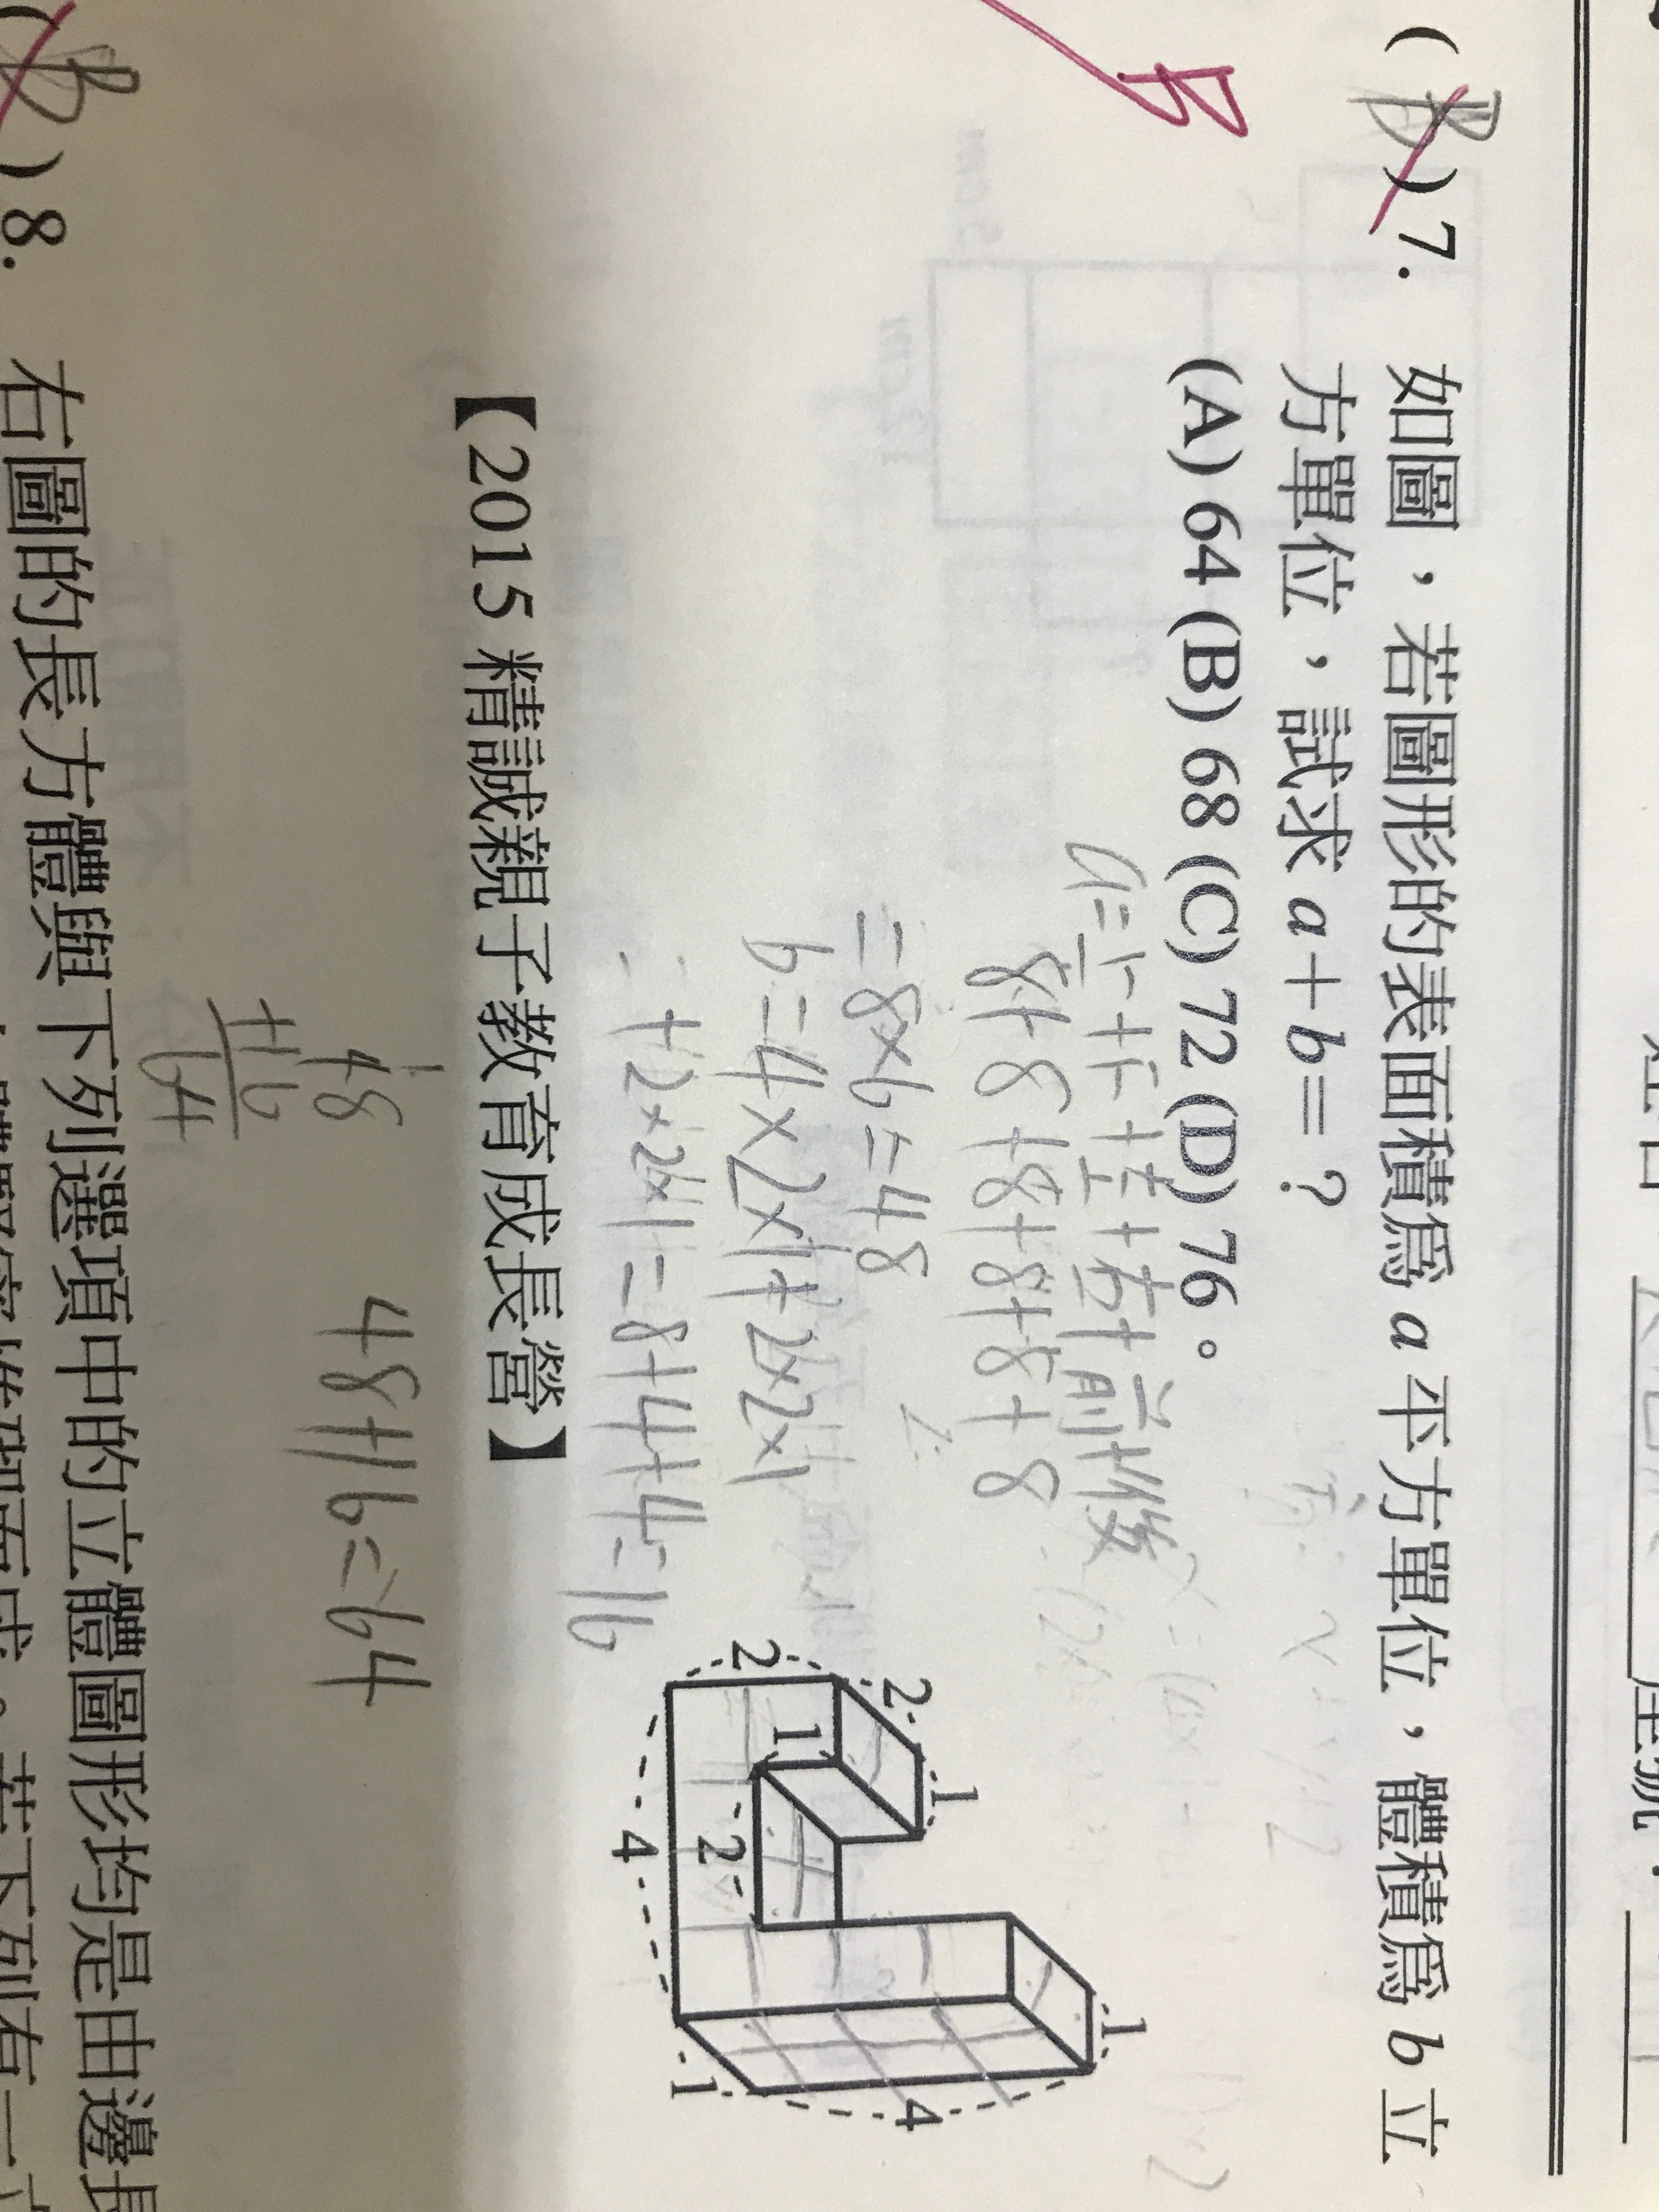 (B)7. 如圖，若圖形的表面積為 a 平方單位，體積為 b 立
方單位，試求 a＋b＝？
(A) 64 (B) 68 (C) 72 (D) 76。
B
a=上+下+左+右+前+後
8+8+8+8+8+8
=8×6=48
b=4×2×1+2×2×1
+2×2×1=8+4+4=16
2
2
1
1
2
4
1
1
4
【2015 精誠親子教育成長營】
48+16=64
48
+16
64
(B)8. 右圖的長方體與下列選項中的立體圖形均是由邊長